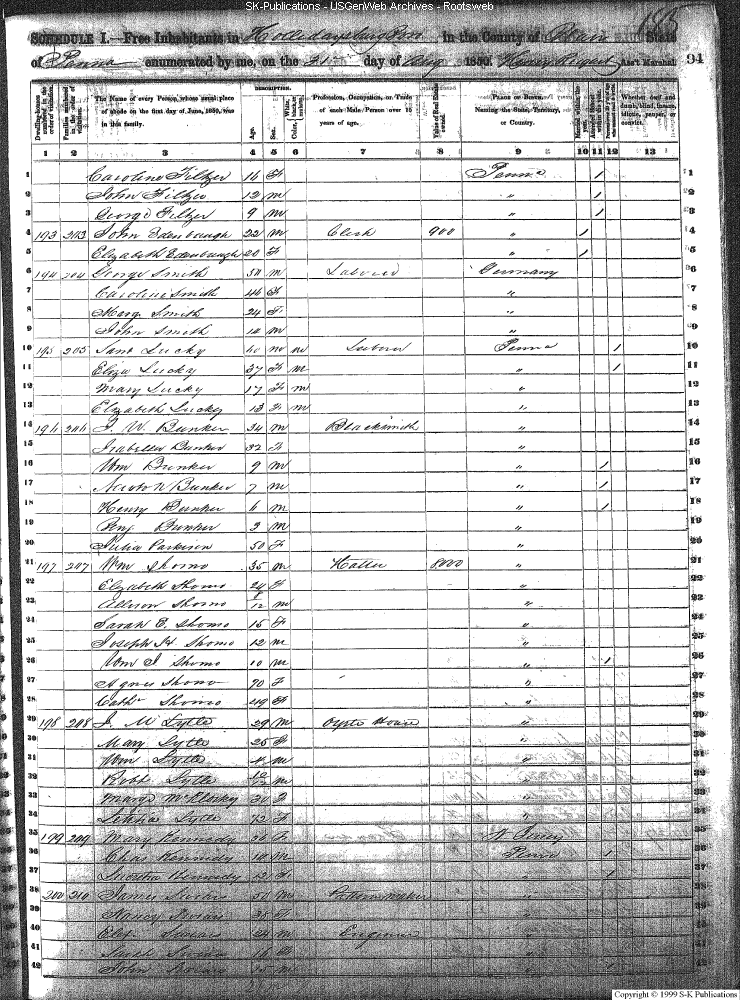 SK-Publications - USGenWeb Archives - Rootsweb
SCHEDULE I.—Free Inhabitants in Hollidaysburg Boro in the County of Blair State
of Penna enumerated by me, on the 31 day of Aug 1850. Ass't Marshal 94
DESCRIPTION.
Dwelling-houses numbered in the order of visitation.
Families numbered in the order of visitation.
The Name of every Person whose usual place of abode on the first day of June, 1850, was in this family.
Age.
Sex.
Profession, Occupation, or Trade of each Male Person over 15 years of age.
Value of Real Estate owned.
PLACE OF BIRTH. Naming the State, Territory, or Country.
Married within the year.
Whether deaf and dumb, blind, insane, idiotic, pauper, or convict.
1 2 3 4 5 6 7 8 9 10 11 12 13
1 Caroline Filtzer 14 F Penna / 1
2 John Filtzer 12 m " / 2
3 George Filtzer 9 m " / 3
4 193 203 John Edenbaugh 22 m Clerk 900 " / 4
5 Elizabeth Edenbaugh 20 F " / 5
6 194 204 George Smith 50 m Laborer Germany 6
7 Caroline Smith 46 F " 7
8 Marg Smith 24 F " 8
9 John Smith m " 9
10 195 205 Lucky 60 m m Laborer Penna / 10
11 Eliza Lucky 37 F m " / 11
12 Mary Lucky 17 F m " 12
13 Elizabeth Lucky 13 F m " 13
14 196 206 J. W. Bunker 34 m Blacksmith " 14
15 Isabella Bunker 32 F " 15
16 Wm Bunker 9 m " / 16
17 Newton Bunker 7 m " / 17
18 Henry Bunker 6 m " / 18
19 Benj Bunker 3 m " 19
20 Julia Parkison 50 F " 20
21 197 207 Wm Shomo 35 m Hatter 8000 " 21
22 Elizabeth Shomo 24 F " 22
23 Allison Shomo m " 23
24 Sarah E. Shomo 15 F " 24
25 Joseph H Shomo 12 m " 25
26 Wm J Shomo 10 m " / 26
27 Agnes Shomo 70 F " 27
28 Cathe Shomo 49 F " 28
29 198 208 J. M Lytle 29 m Oyster House " 29
30 Mary Lytle 25 F " 30
31 Wm Lytle 4 m " 31
32 Robt Lytle 10/12 m " 32
33 Marg McClosky 30 F " 33
34 Lytle 72 F " 34
35 199 209 Mary Kennedy 36 F N. Jersey 35
36 Chas Kennedy m Penna / 36
37 Martha Kennedy 12 F " / 37
38 200 210 James 50 m Pattern maker " 38
39 Nancy 35 F " 39
40 m Engineer " 40
41 Sarah 16 F " 41
42 John m " 42
Copyright © 1999 S-K Publications